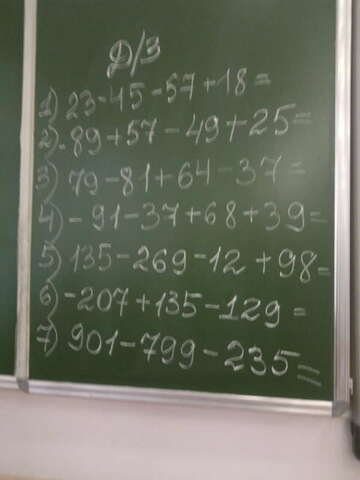 Д/З
1) 23-45-57+18=
2) -89+57-49+25=
3) 79-81+64-37=
4) -91-37+68+39=
5) 135-269-12+98=
6) -207+135-129=
7) 901-799-235=